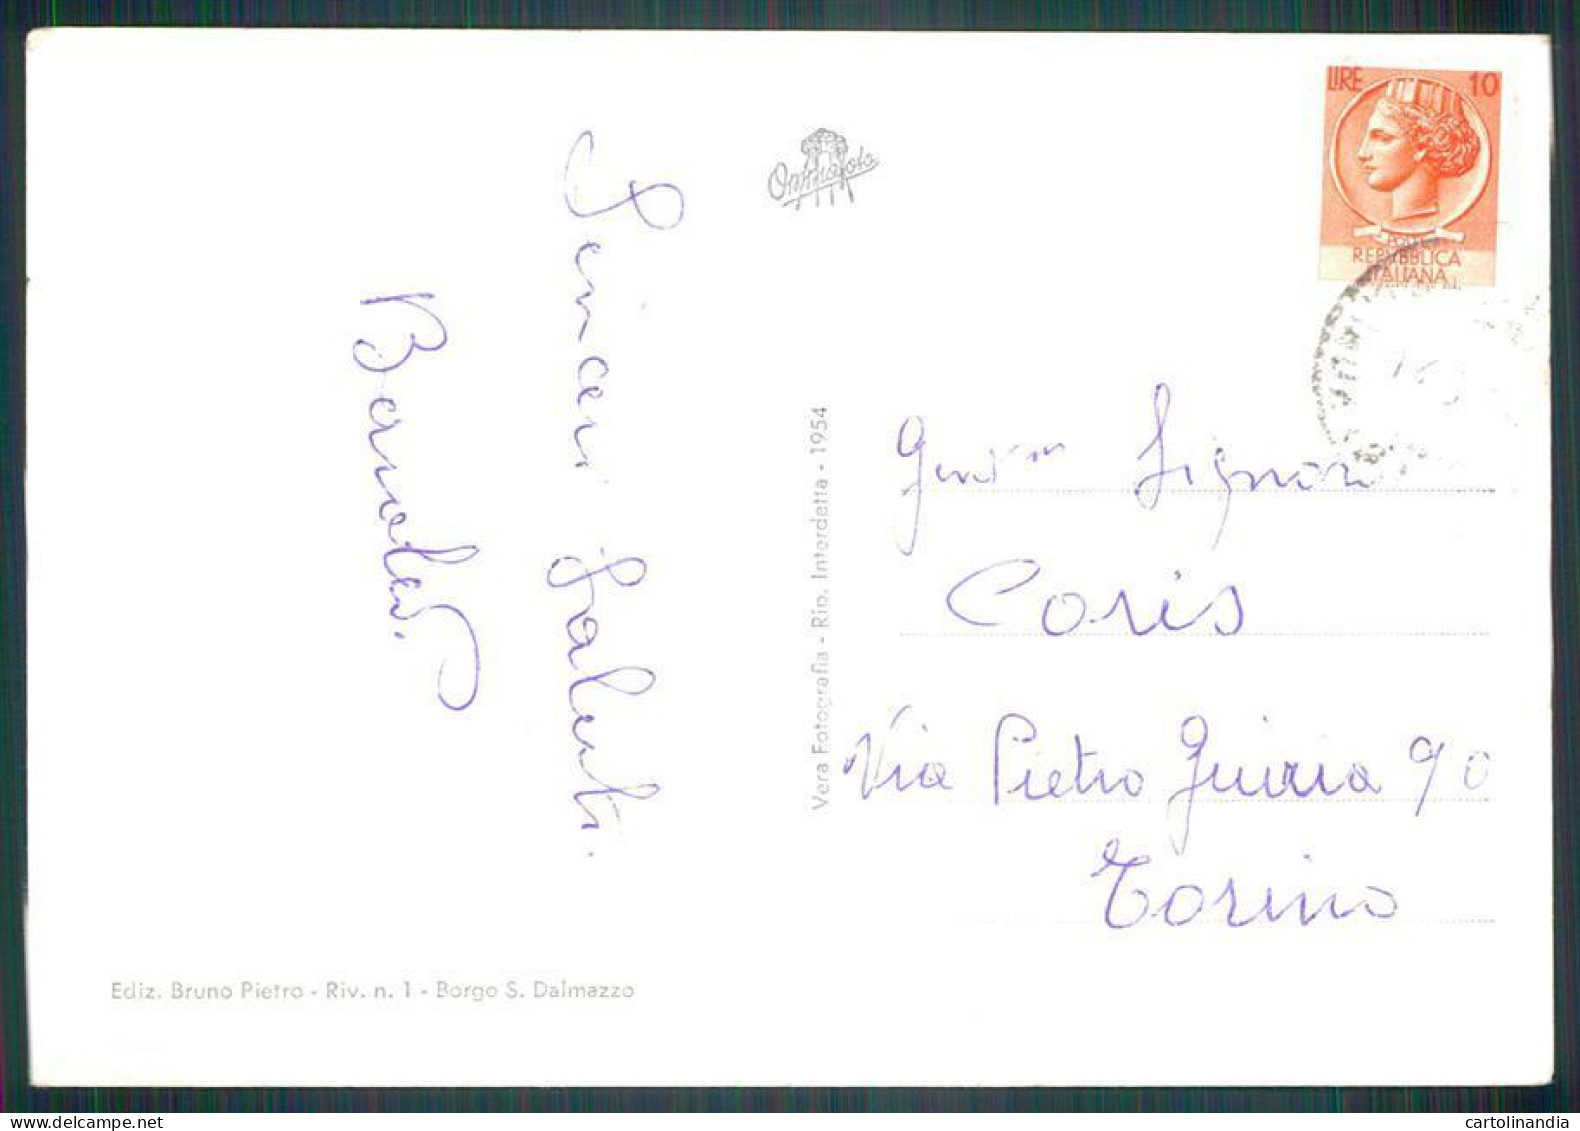 Sinceri Saluti.
Omniafoto
LIRE 10
REPUBBLICA
ITALIANA
Vera Fotografia - Rip. Interdetta - 1954
Signori
Coris
Via Pietro Giuria 90
Torino
Ediz. Bruno Pietro - Riv. n. 1 - Borgo S. Dalmazzo
cartolinandia